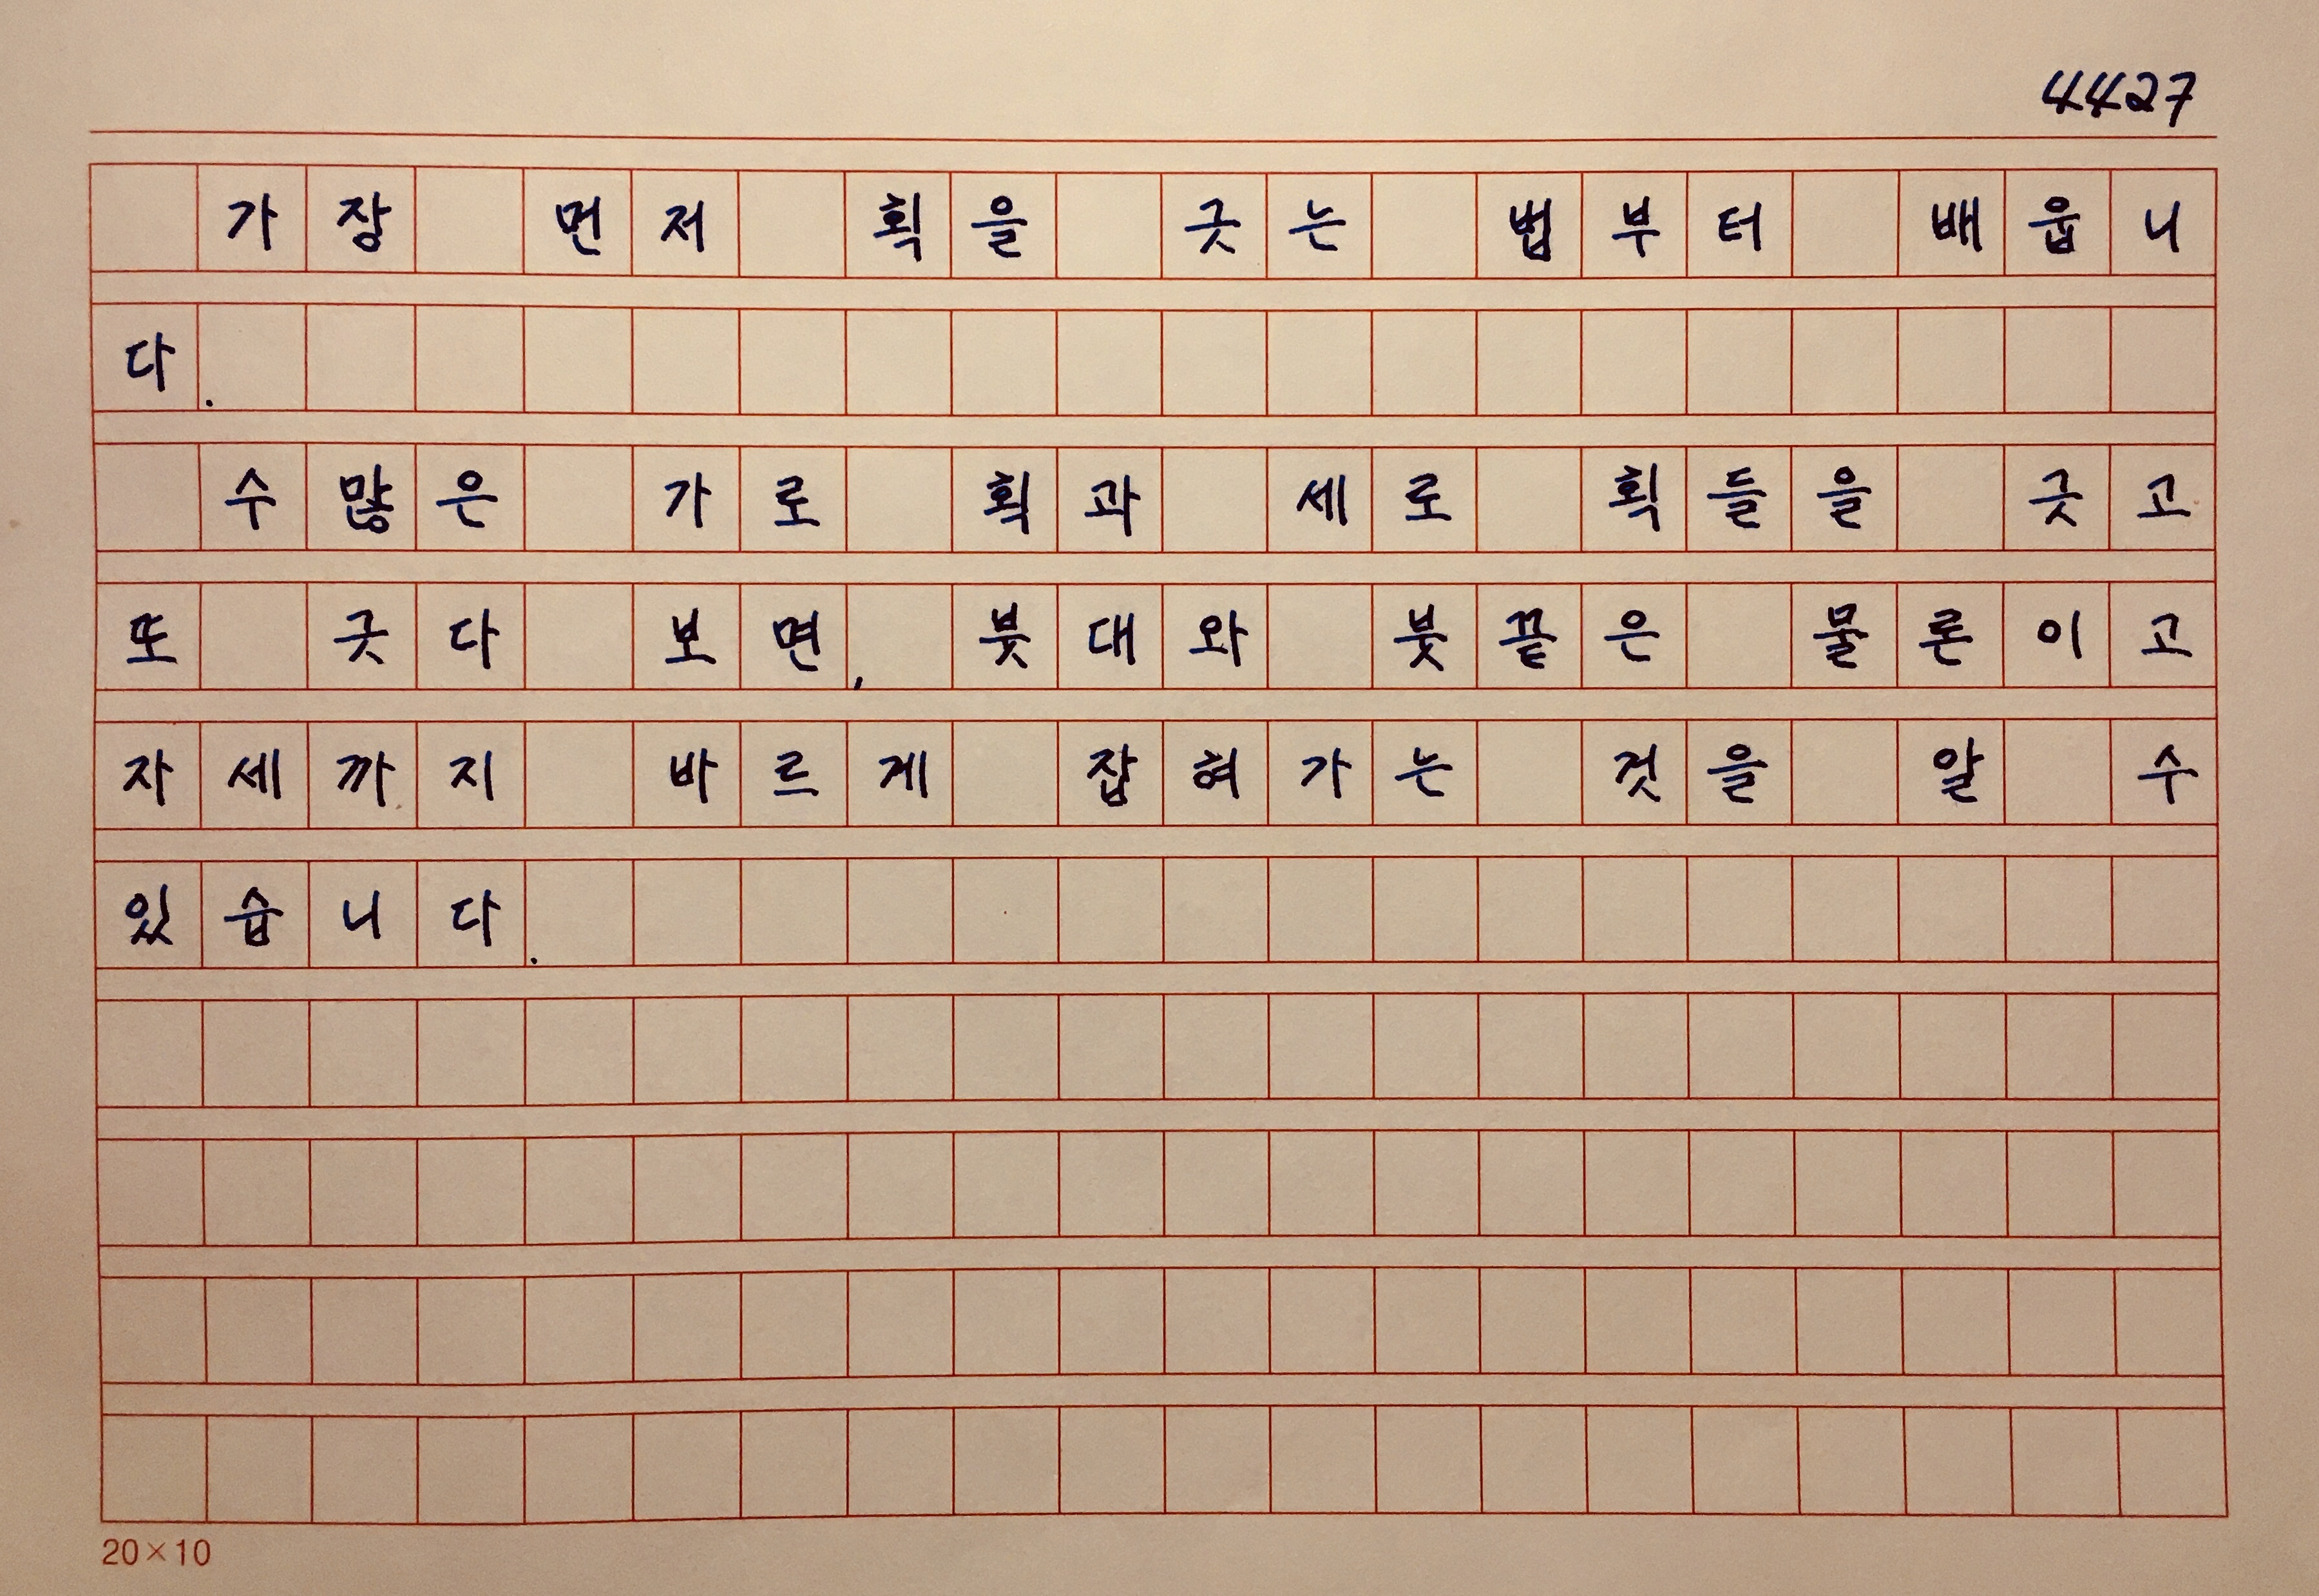 4427
가장 먼저 획을 긋는 법부터 배웁니
다.
수많은 가로 획과 세로 획들을 긋고
또 긋다 보면, 붓대와 붓끝은 물론이고
자세까지 바르게 잡혀가는 것을 알 수
있습니다.
20×10